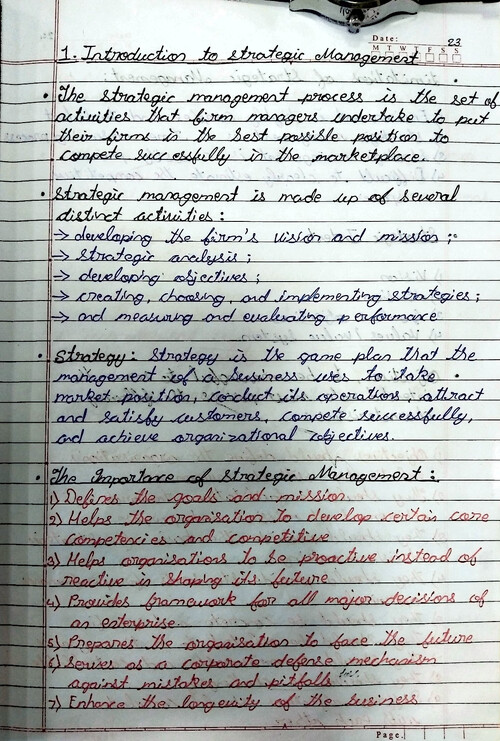 Date: 23
M T W T F S S
1. Introduction to strategic Management
• The strategic management process is the set of
activities that firm managers undertake to put
their firms in the best possible position to
compete successfully in the marketplace.
• Strategic management is made up of several
distinct activities :
→ developing the firm's vision and mission ;
→ strategic analysis ;
→ developing objectives ;
→ creating, choosing, and implementing strategies ;
→ and measuring and evaluating performance
• Strategy : Strategy is the game plan that the
management of a business uses to take
market position, conduct its operations, attract
and satisfy customers, compete successfully,
and achieve organizational objectives.
• The Importance of Strategic Management :
1) Defines the goals and mission
2) Helps the organisation to develop certain core
competencies and competitive
3) Helps organisations to be proactive instead of
reactive in shaping its future
4) Provides framework for all major decisions of
an enterprise
5) Prepares the organisation to face the future
6) Serves as a corporate defense mechanism
against mistakes and pitfalls
7) Enhance the longevity of the business
Page.